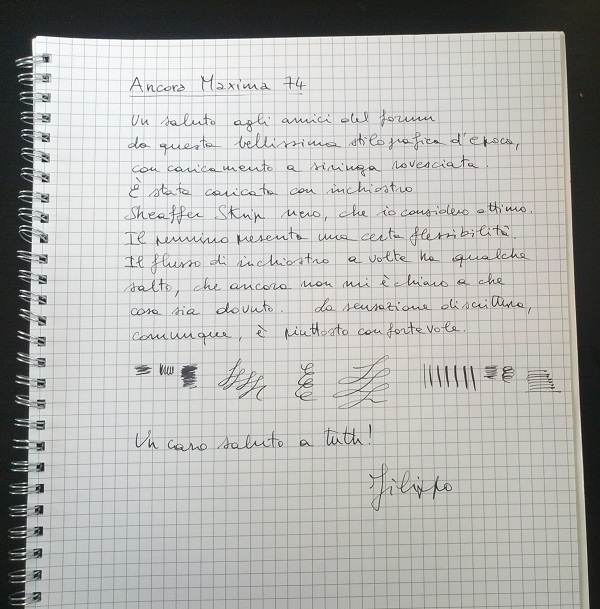 Ancora Maxima 74
Un saluto agli amici del forum
da questa bellissima stilografica d'epoca,
con caricamento a siringa rovesciata.
È stata caricata con inchiostro
Sheaffer Skrip nero, che io considero ottimo.
Il pennino presenta una certa flessibilità.
Il flusso di inchiostro a volte ha qualche
salto, che ancora non mi è chiaro a che
cosa sia dovuto. La sensazione di scrittura,
comunque, è piuttosto confortevole.
Un caro saluto a tutti!
Filippo